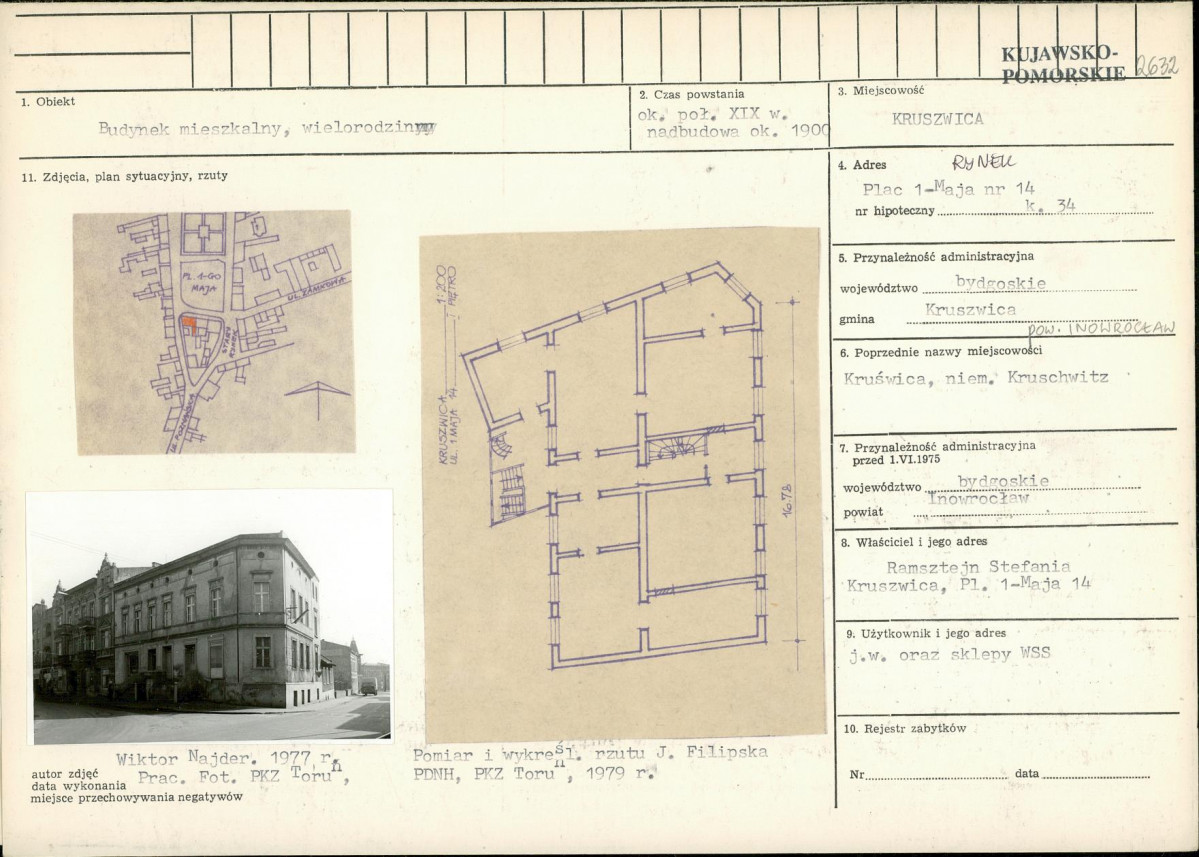 KUJAWSKO-
POMORSKIE 2632
1. Obiekt
Budynek mieszkalny, wielorodzinny
2. Czas powstania
ok. poł. XIX w.
nadbudowa ok. 1900
3. Miejscowość
KRUSZWICA
11. Zdjęcia, plan sytuacyjny, rzuty
PL. 1-GO
MAJA
UL. ZAMKOWA
STARY
RYNEK
UL. POZNAŃSKA
KRUSZWICA 1:200
UL. 1 MAJA 14 I PIĘTRO
16.78
4. Adres RYNEK
Plac 1-Maja nr 14
nr hipoteczny k. 34
5. Przynależność administracyjna
województwo bydgoskie
gmina Kruszwica
pow. INOWROCŁAW
6. Poprzednie nazwy miejscowości
Kruświca, niem. Kruschwitz
7. Przynależność administracyjna
przed 1.VI.1975
województwo bydgoskie
powiat Inowrocław
8. Właściciel i jego adres
Ramsztejn Stefania
Kruszwica, Pl. 1-Maja 14
9. Użytkownik i jego adres
j.w. oraz sklepy WSS
10. Rejestr zabytków
Nr data
Wiktor Najder. 1977 r.
autor zdjęć Prac. Fot. PKZ Toruń,
data wykonania
miejsce przechowywania negatywów
Pomiar i wykreśl. rzutu J. Filipska
PDNH, PKZ Toruń, 1979 r.